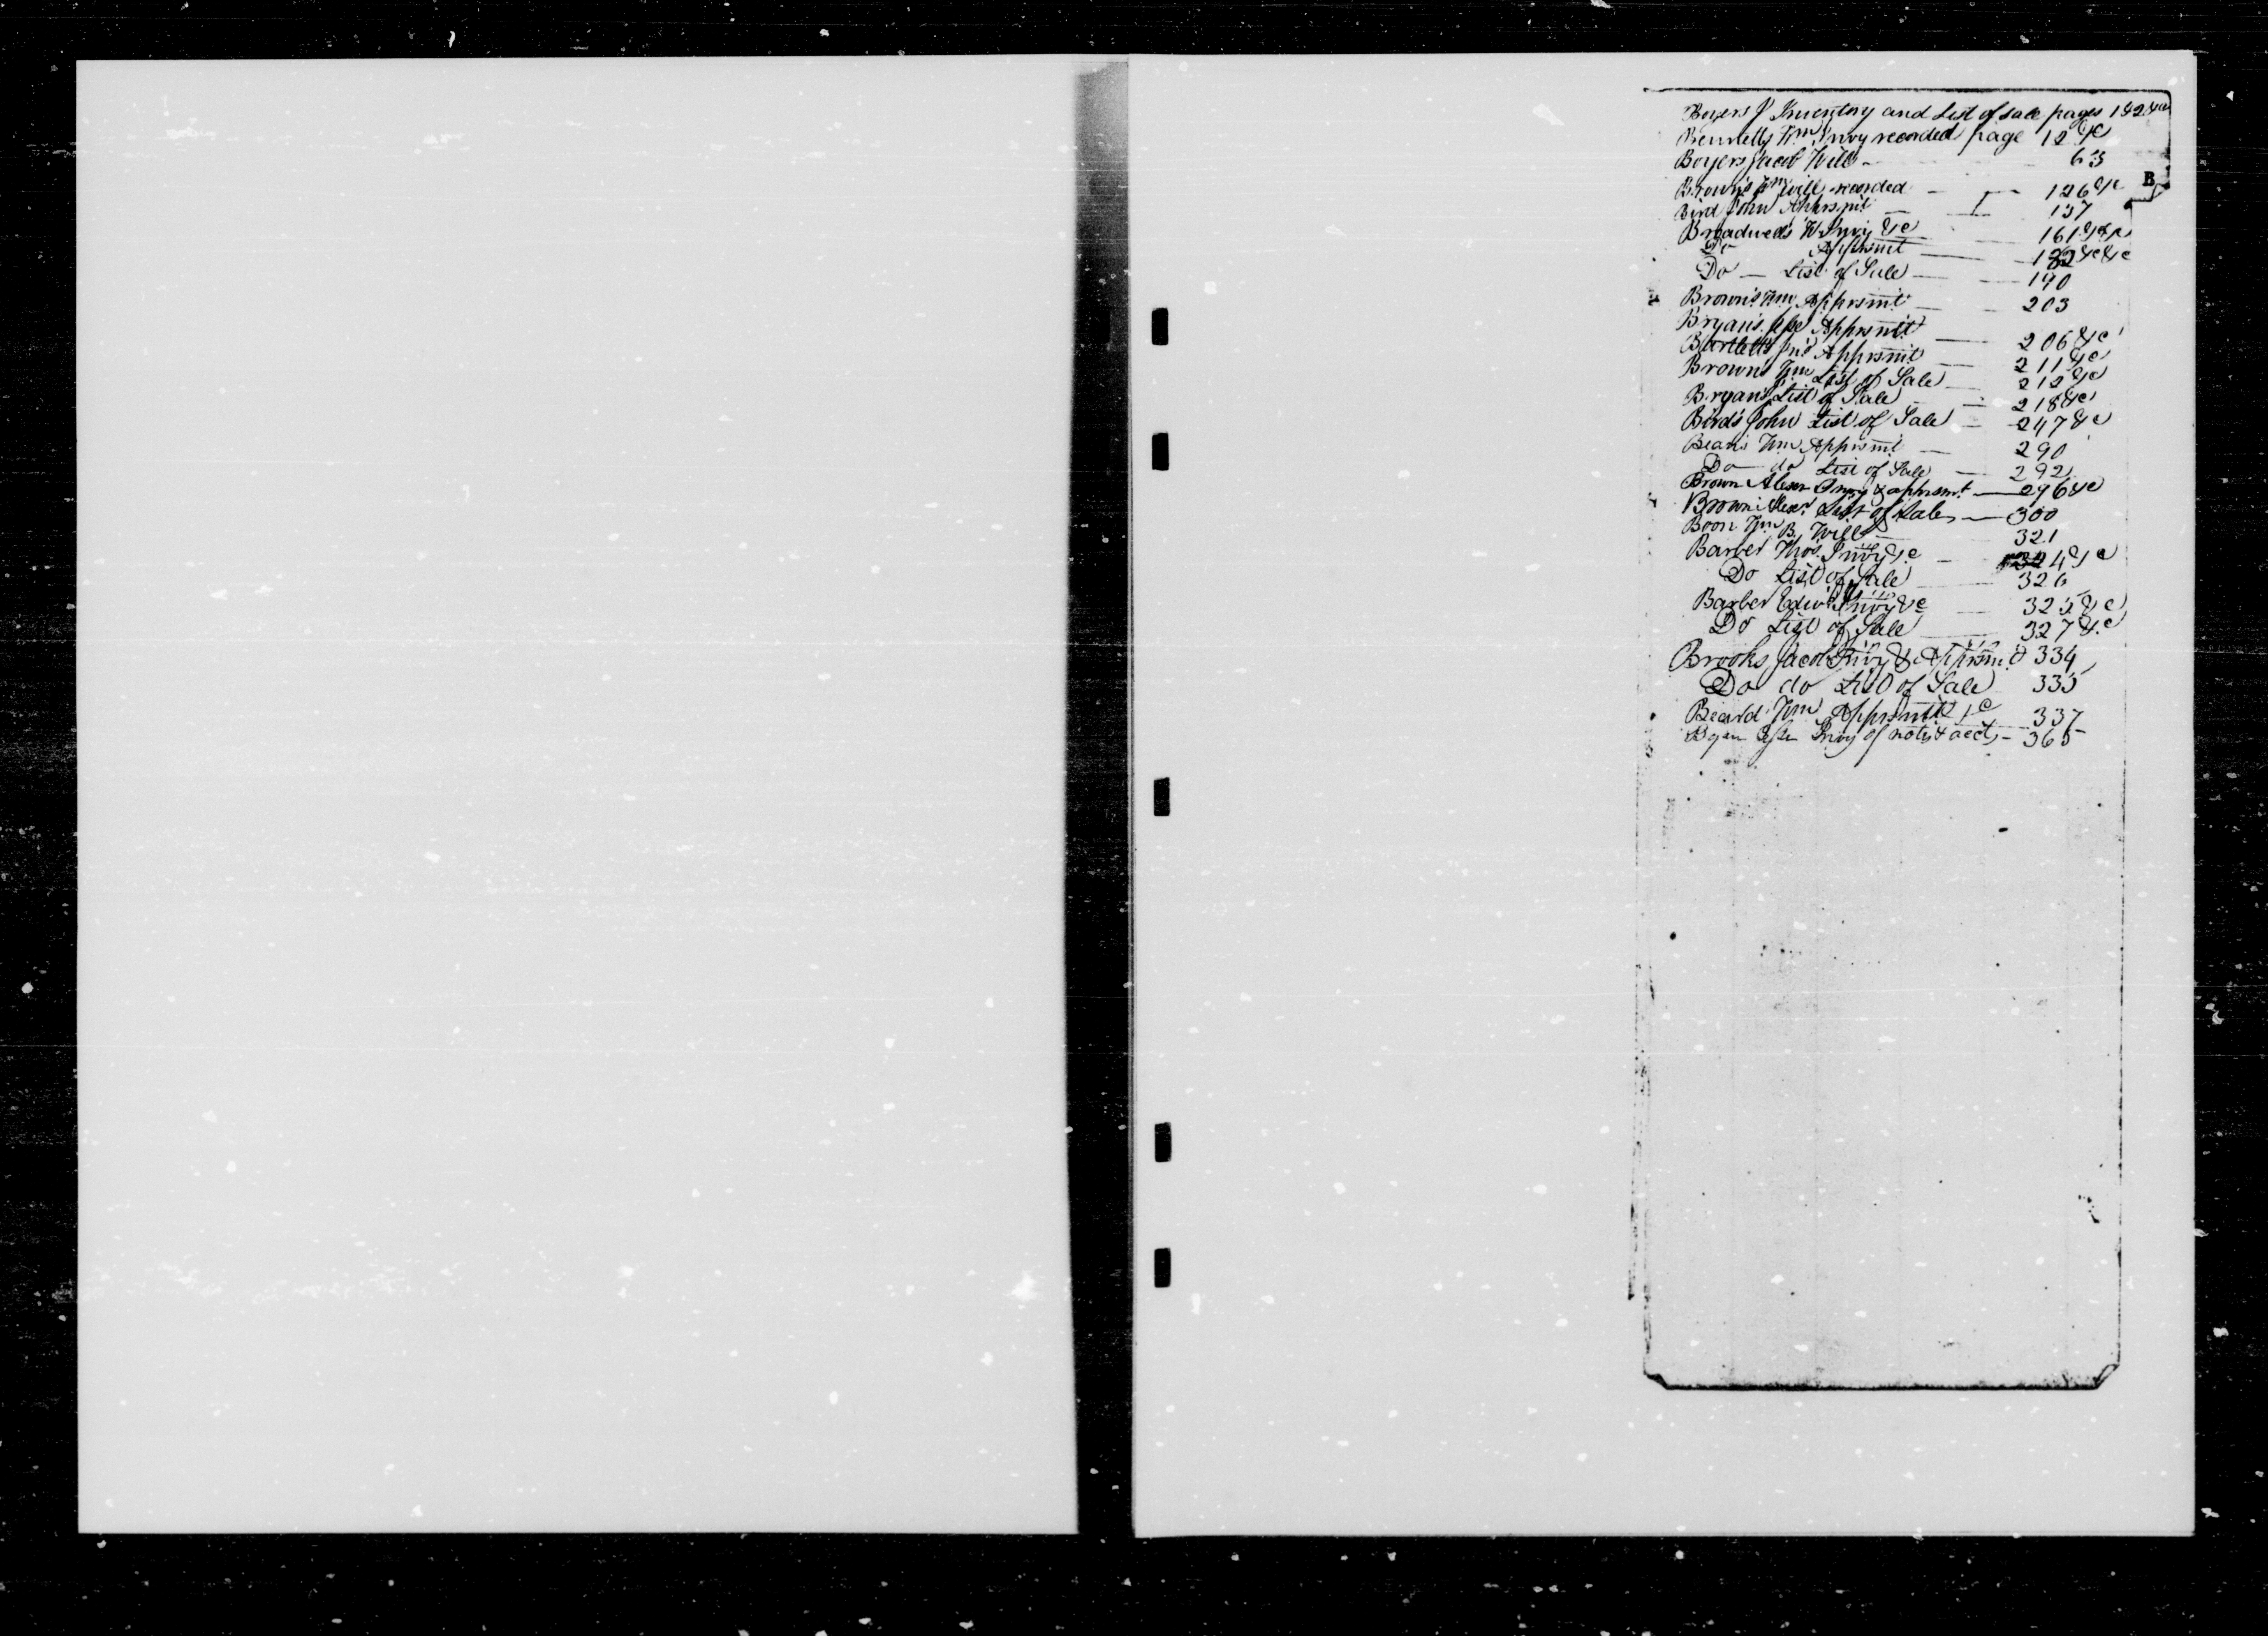 Boyers J Inventory and List of sale pages 1&2&c
Bennetts Wm Invy recorded page 12 &c
Boyers Jacob Will - 63
B
Brown's Wm Will recorded - 126 &c
Bird John Apprsmt - 137
Broadwell's Wm Invy &c - 161 &c
Do Apprsmt - 182 &c &c
Do - List of Sale - 190
Brown's Wm Apprsmt - 203
Bryan's Apprsmt - 206 &c
Bartlett's Jno Apprsmt - 211 &c
Brown's Wm List of Sale - 212 &c
Bryan's List of Sale - 218 &c
Bird's John List of Sale - 247 &c
Bean's Wm Apprsmt - 290
Do do List of Sale - 292
Brown Alexr Invy & apprsmt - 296 &c
Brown Alexr List of Sale - 300
Boon Wm B. Will - 321
Barber Thos. Invy &c - 324 &c
Do List of Sale - 326
Barber Edwd Invy &c - 325 &c
Do List of Sale - 327 &c
Brooks Jacob Invy & Apprsmt 334
Do do List of Sale 335
Beard Wm Apprsmt &c 337
Invy of notes & accts - 365